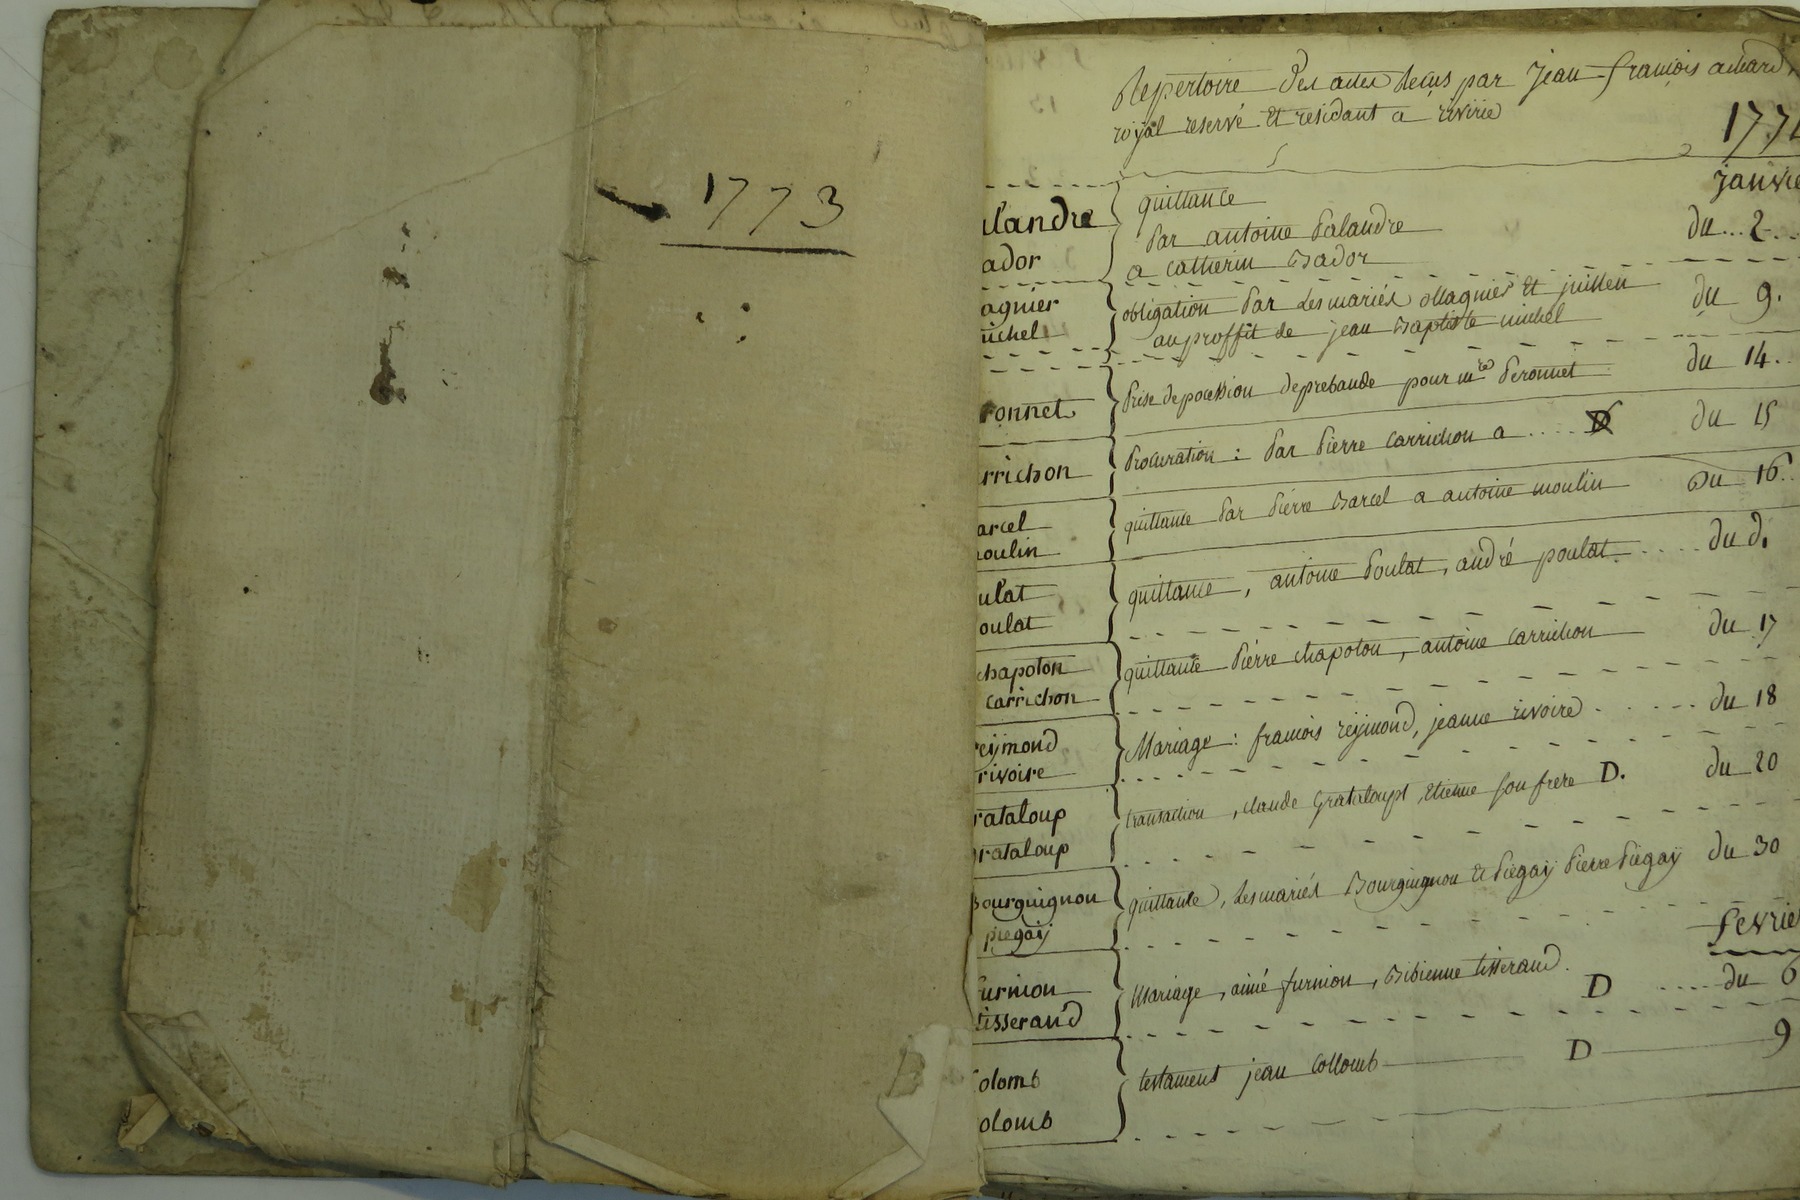 1773
Repertoire des actes Recus par Jean francois achard
royal reservé et residant a riverie
177
janvie
landre
ador
quittance
par antoine palandre
a catherin Bador
du .. 2 ..
agnier
ichel
obligation par Les mariés ollagnier et juillen
au proffit de jean Baptiste michel
du 9.
ronnet
Prise de possession de prebande pour mre peronnet
du 14..
rrichon
Procuration : par Pierre Carrichon a .... D
du 15
arcel
moulin
quittance par Pierre Barcel a antoine moulin
Du 16..
ulat
oulat
quittance, antoine Poulat, andré poulat ..... du d.
chapoton
Carrichon
quittance Pierre chapoton, antoine Carrichon
du 17
reijmond
rivoire
Mariage : francois reijmond, jeanne rivoire ..... du 18
rataloup
grataloup
transaction, claude grataloupt, etienne son frere D.
du 20
Bourguignon
piegaij
quittance, Les mariés Bourguignon et Piegaij Pierre Piegaij
du 30
fevrie
furnion
tisserand
Mariage, aimé furnion, Bibienne tisserand.
D .... du 6
olomb
olomb
testament jean Collomb D 9